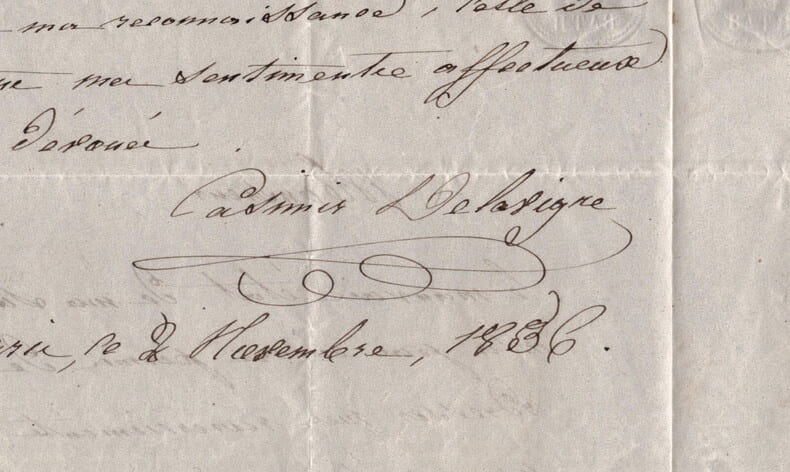 ma reconnaissance, celle de
mes sentiments affectueux
Dévoué.
Casimir Delavigne
le 2 Novembre, 1836.